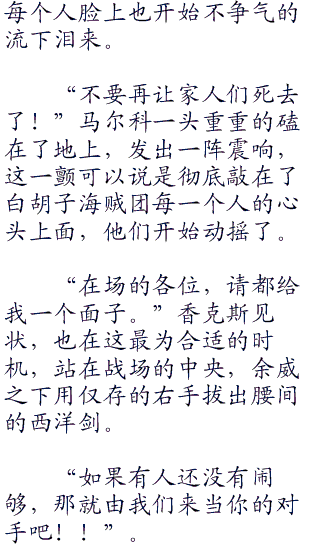 每个人脸上也开始不争气的
流下泪来。
“不要再让家人们死去
了！”马尔科一头重重的磕
在了地上，发出一阵震响，
这一颤可以说是彻底敲在了
白胡子海贼团每一个人的心
头上面，他们开始动摇了。
“在场的各位，请都给
我一个面子。”香克斯见
状，也在这最为合适的时
机，站在战场的中央，余威
之下用仅存的右手拔出腰间
的西洋剑。
“如果有人还没有闹
够，那就由我们来当你的对
手吧！！”。